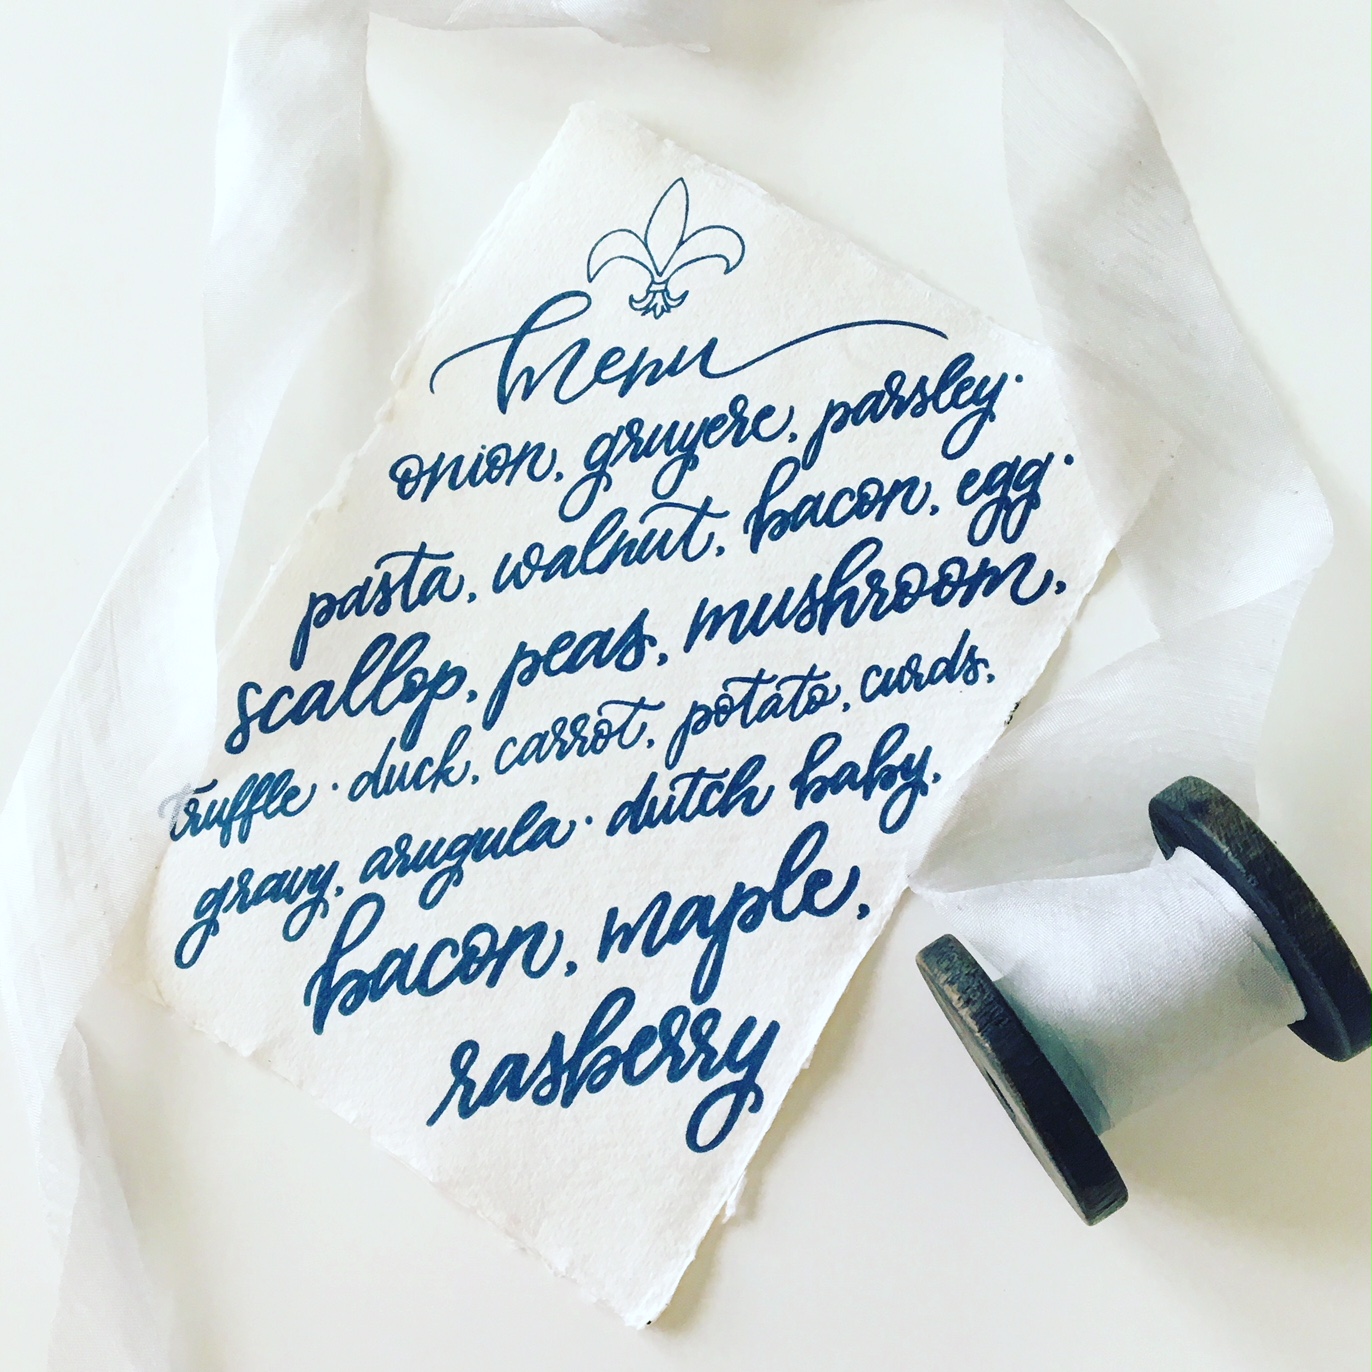 menu
onion, gruyere, parsley·
pasta, walnut, bacon, egg·
scallop, peas, mushroom,
truffle · duck, carrot, potato, curds,
gravy, arugula · dutch baby,
bacon, maple,
rasberry